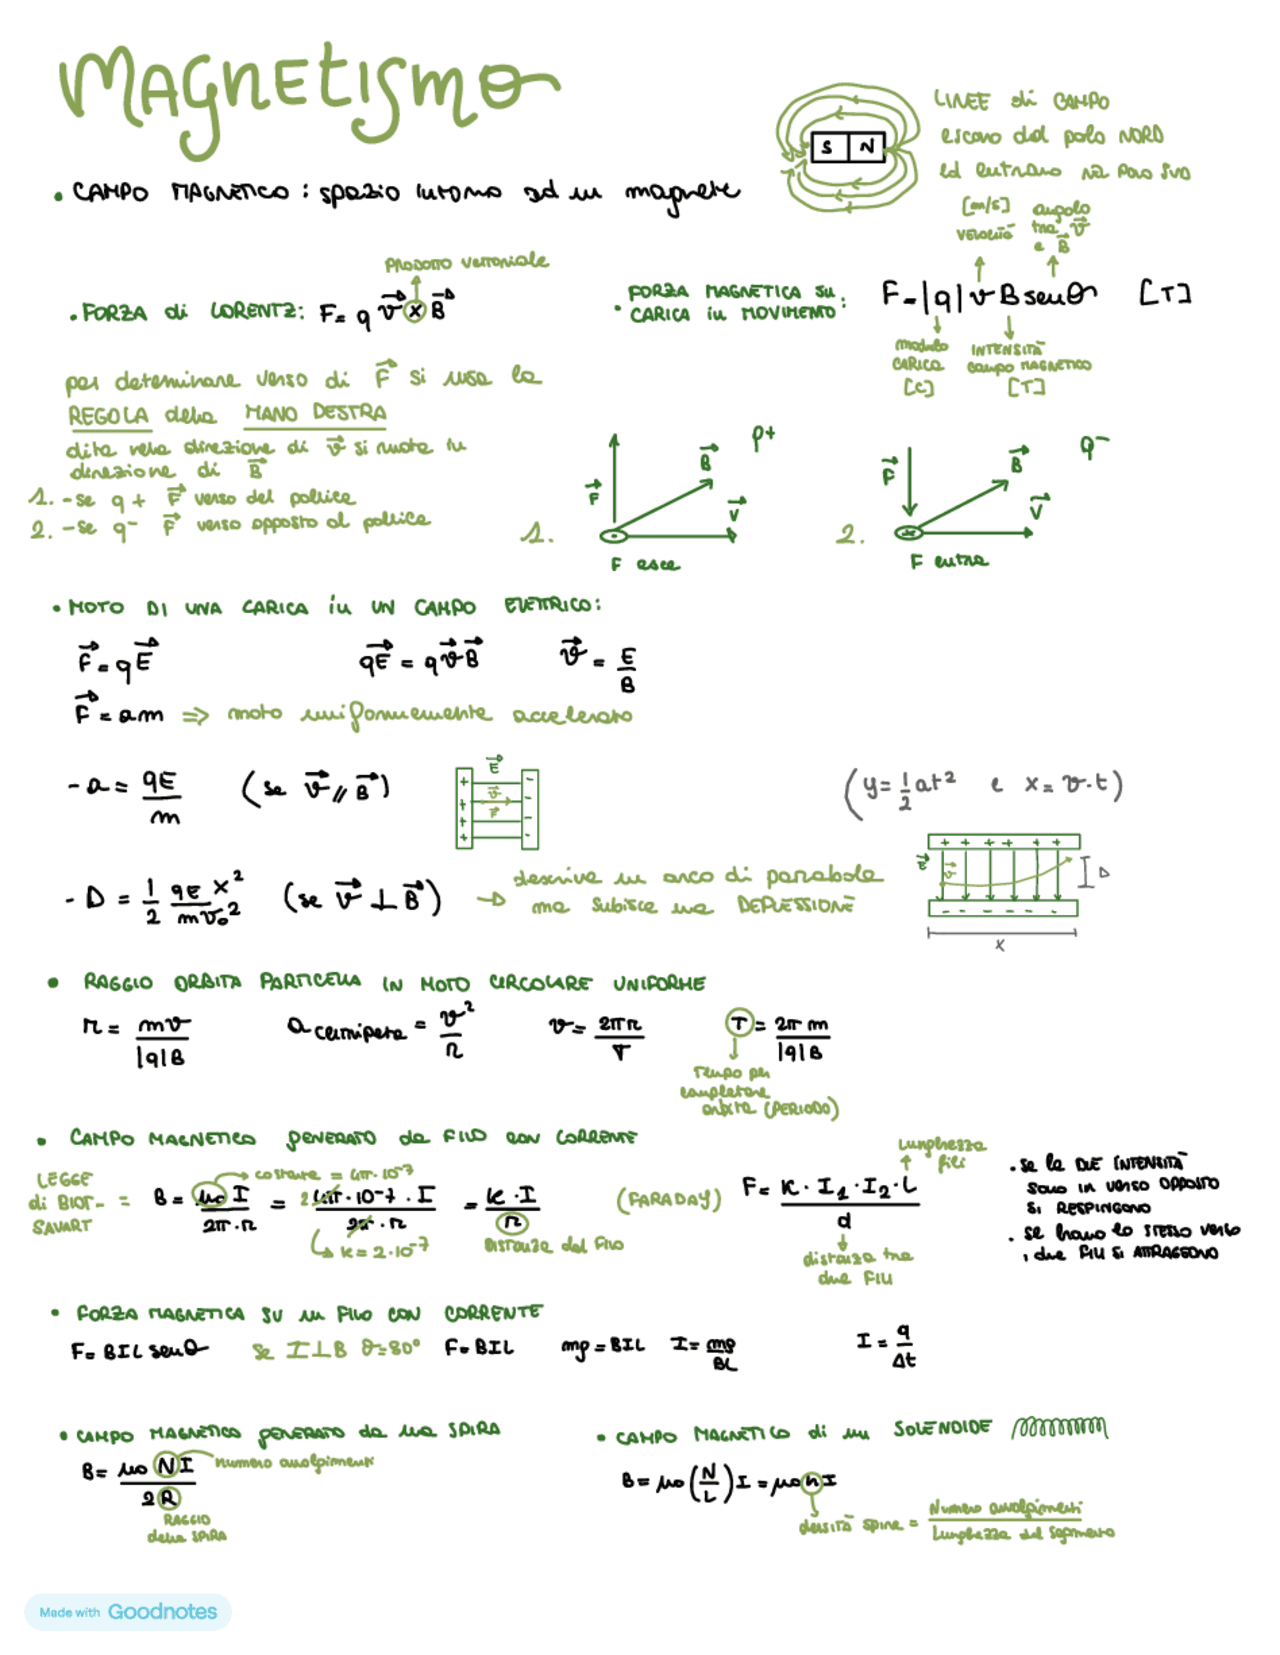 MAGNETISMO
S N
LINEE di CAMPO
escono dal polo NORD
ed entrano nel POLO SUD
• CAMPO MAGNETICO : spazio intorno ad un magnete
PRODOTTO VETTORIALE
• FORZA di LORENTZ: F= q v⃗ x B⃗
• FORZA MAGNETICA SU
CARICA in MOVIMENTO:
F=|q| v B senθ [T]
[m/s]
VELOCITÀ
angolo
tra v⃗
e B⃗
modulo
CARICA
[C]
INTENSITÀ
campo MAGNETICO
[T]
per determinare verso di F⃗ si usa la
REGOLA della MANO DESTRA
dita nella direzione di v⃗ si ruota in
direzione di B⃗
1. -se q + F⃗ verso del pollice
2. -se q⁻ F⃗ verso opposto al pollice
1. F⃗ B⃗ V⃗ q+
F esce
2. F⃗ B⃗ V⃗ q⁻
F entra
• MOTO DI UNA CARICA in UN CAMPO ELETTRICO:
F⃗ = qE⃗ qE⃗ = qv⃗B⃗ v⃗ = E/B
F⃗ = am => moto uniformemente accelerato
- a = qE/m (se v⃗ // B⃗)
E⃗
v⃗
F⃗
+ + + +
- - - -
(y= 1/2 at² e x= v·t)
- D = 1/2 qE/mv₀² x² (se v⃗ ⊥ B⃗) → descrive un arco di parabola
ma subisce una DEFLESSIONE
+ + + + + +
E⃗ v⃗ D
- - - - - -
x
• RAGGIO ORBITA PARTICELLA IN MOTO CIRCOLARE UNIFORME
r = mv/|q|B a centripeta = v²/r v = 2πr/T T = 2π m/|q|B
TEMPO per
completare
orbita (PERIODO)
• CAMPO MAGNETICO generato da FILO CON CORRENTE
LEGGE
di BIOT-
SAVART
= B = μo I/2π·r = 2 4π·10⁻⁷·I/2π·r = K·I/r
costante = 4π·10⁻⁷
K = 2·10⁻⁷
DISTANZA dal FILO
(FARADAY) F= K·I₁·I₂·L/d
lunghezza
fili
distanza tra
due FILI
• se le DUE INTENSITÀ
sono in verso opposto
si RESPINGONO
• se hanno lo STESSO verso
i due FILI SI ATTRAGGONO
• FORZA MAGNETICA SU un FILO CON CORRENTE
F= BIL senθ se I⊥B θ=80° F=BIL mg = BIL I= mg/BL I = q/Δt
• CAMPO MAGNETICO generato da una SPIRA
B= μo N I/2 R
numero avvolgimenti
RAGGIO
della SPIRA
• CAMPO MAGNETICO di un SOLENOIDE
B= μo (N/L) I = μo n I
densità spire = Numero avvolgimenti/Lunghezza del segmento
Made with Goodnotes